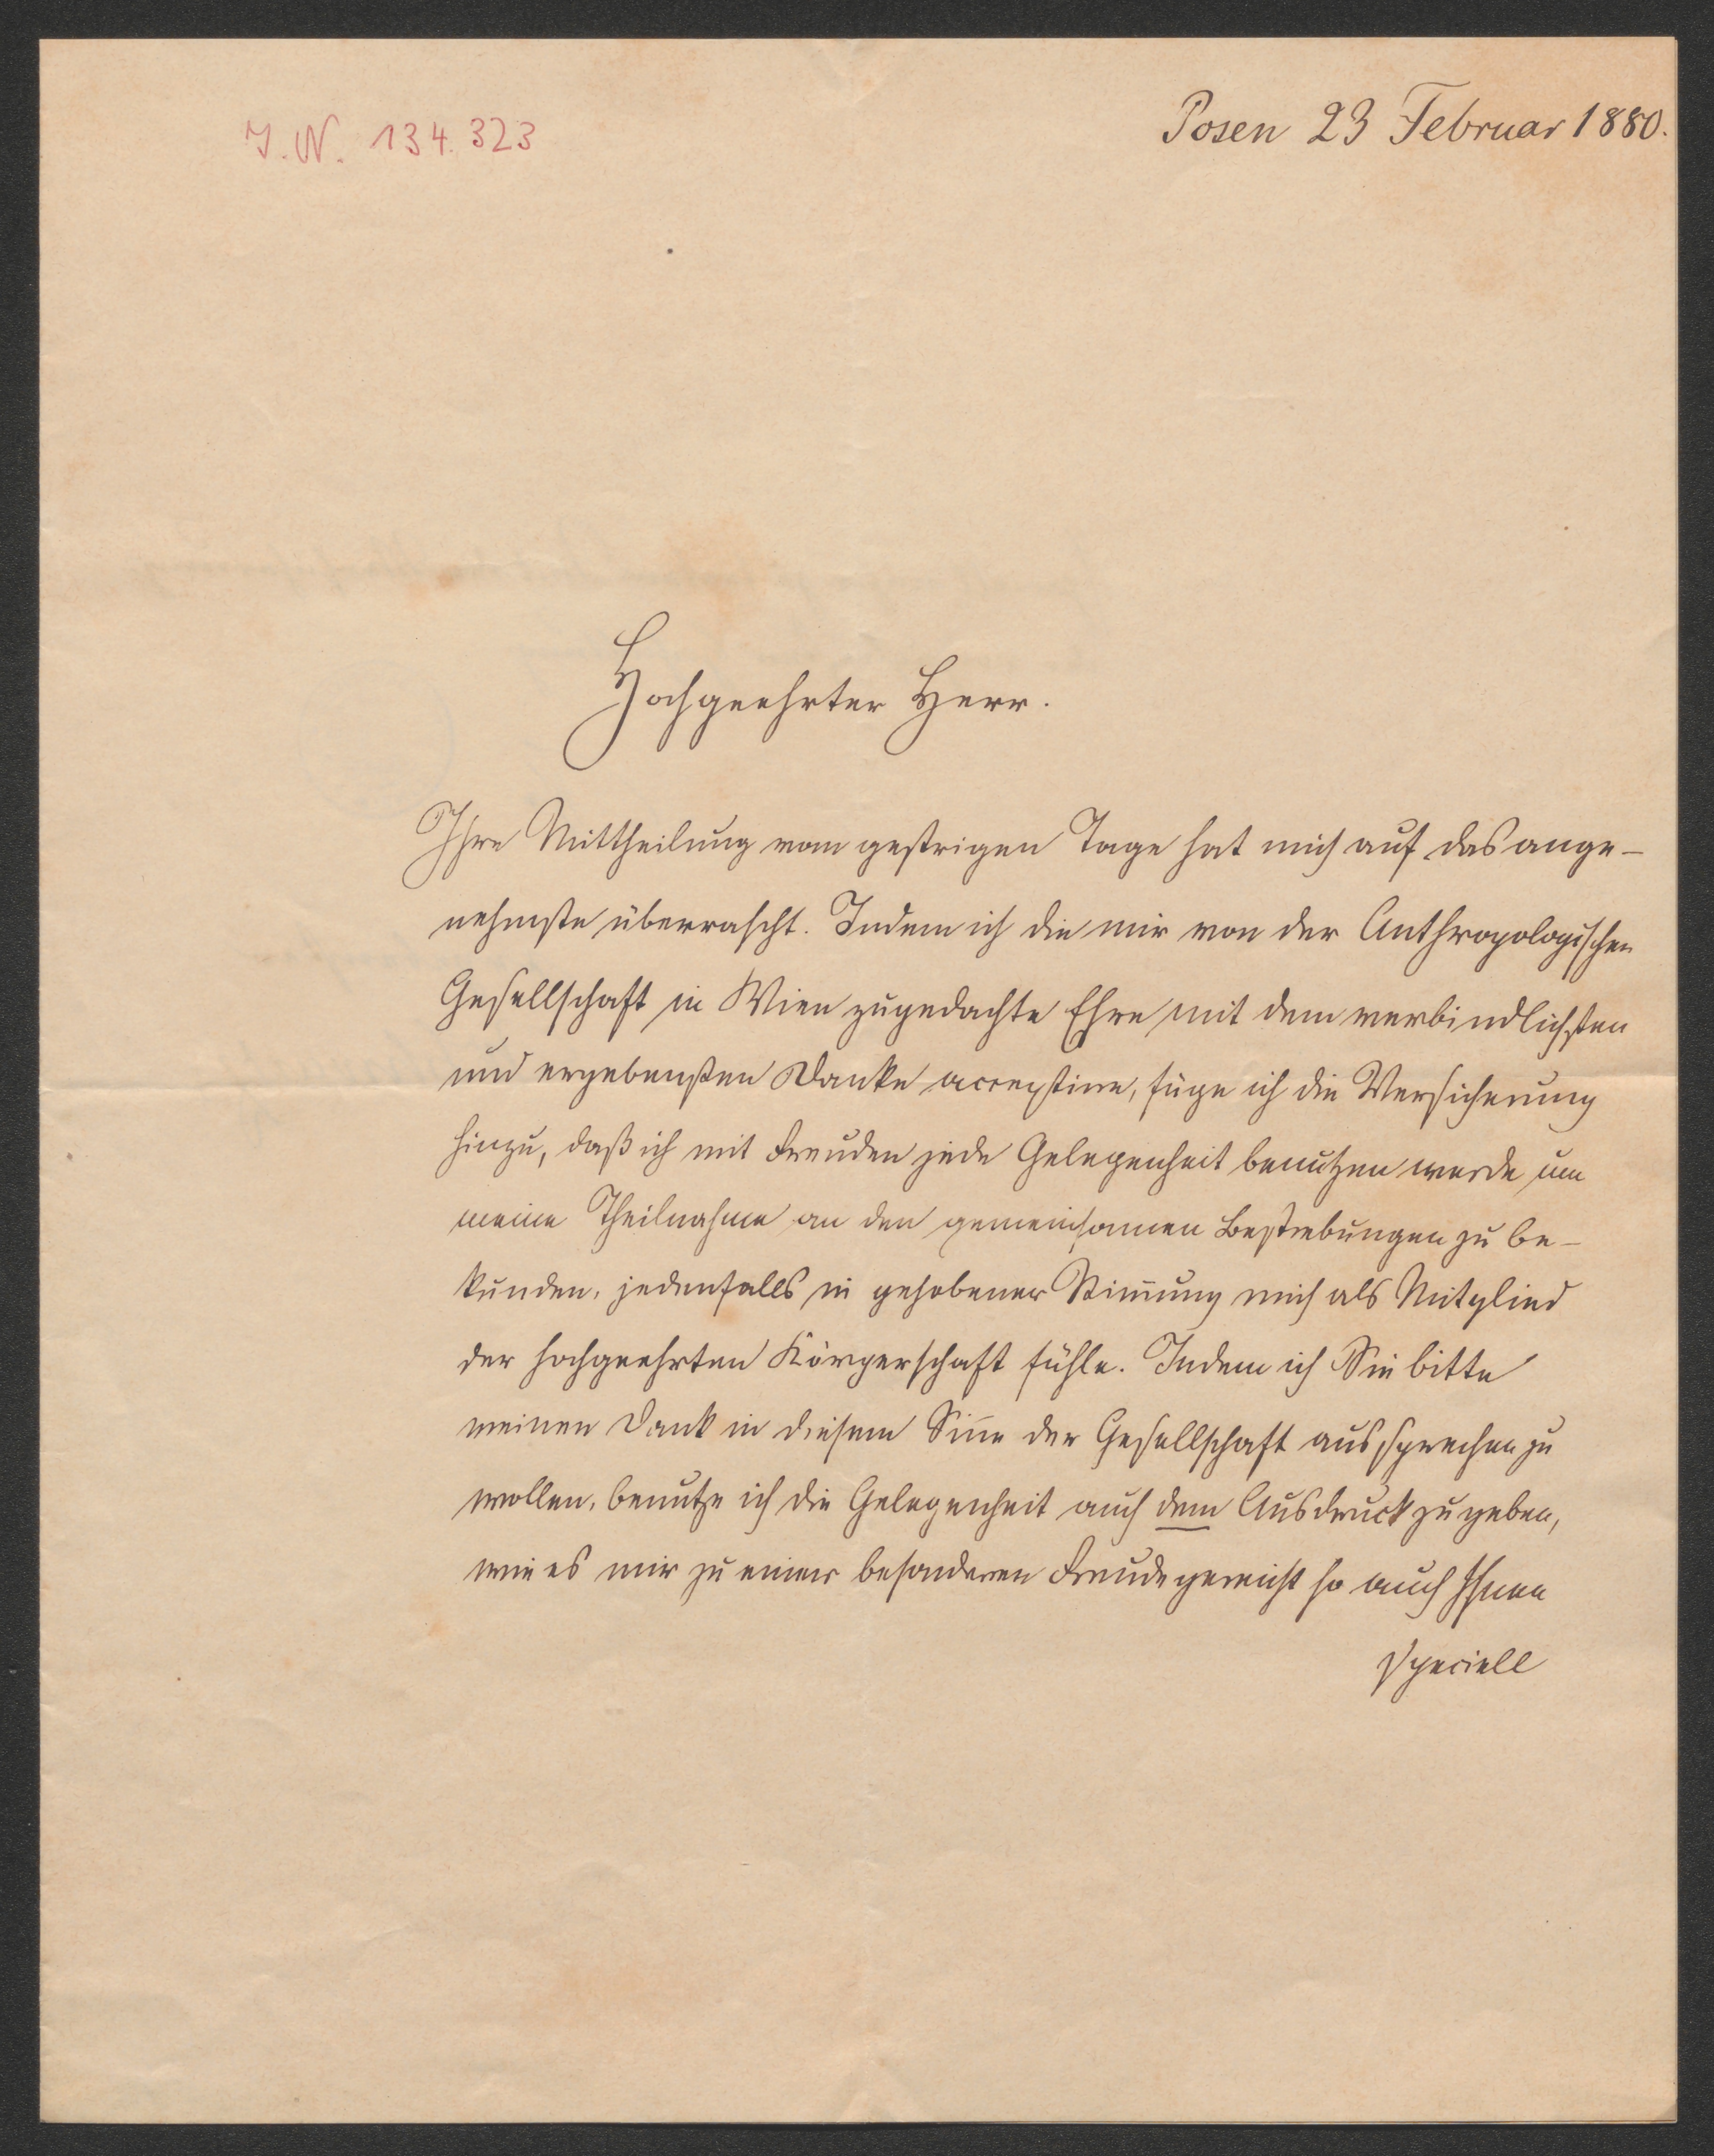 J. N. 134.323
Posen 23 Februar 1880.
Hochgeehrter Herr.
Ihre Mittheilung vom gestrigen Tage hat mich auf das ange-
nehmste überrascht. Indem ich die mir von der Anthropologischen
Gesellschaft in Wien zugedachte Ehre mit dem verbindlichsten
und ergebensten Danke acceptire, füge ich die Versicherung
hinzu, daß ich mit Freuden jede Gelegenheit benutzen werde um
meine Theilnahme an den gemeinsamen Bestrebungen zu be-
kunden, jedenfalls in gehobener Stim̄ung mich als Mitglied
der hochgeehrten Körperschaft fühle. Indem ich Sie bitte
meinen Dank in diesem Sin̄e der Gesellschaft aussprechen zu
wollen, benutze ich die Gelegenheit auch dem Ausdruck zu geben,
wie es mir zu einer besonderen Freude gereicht so auch Ihnen
speciell